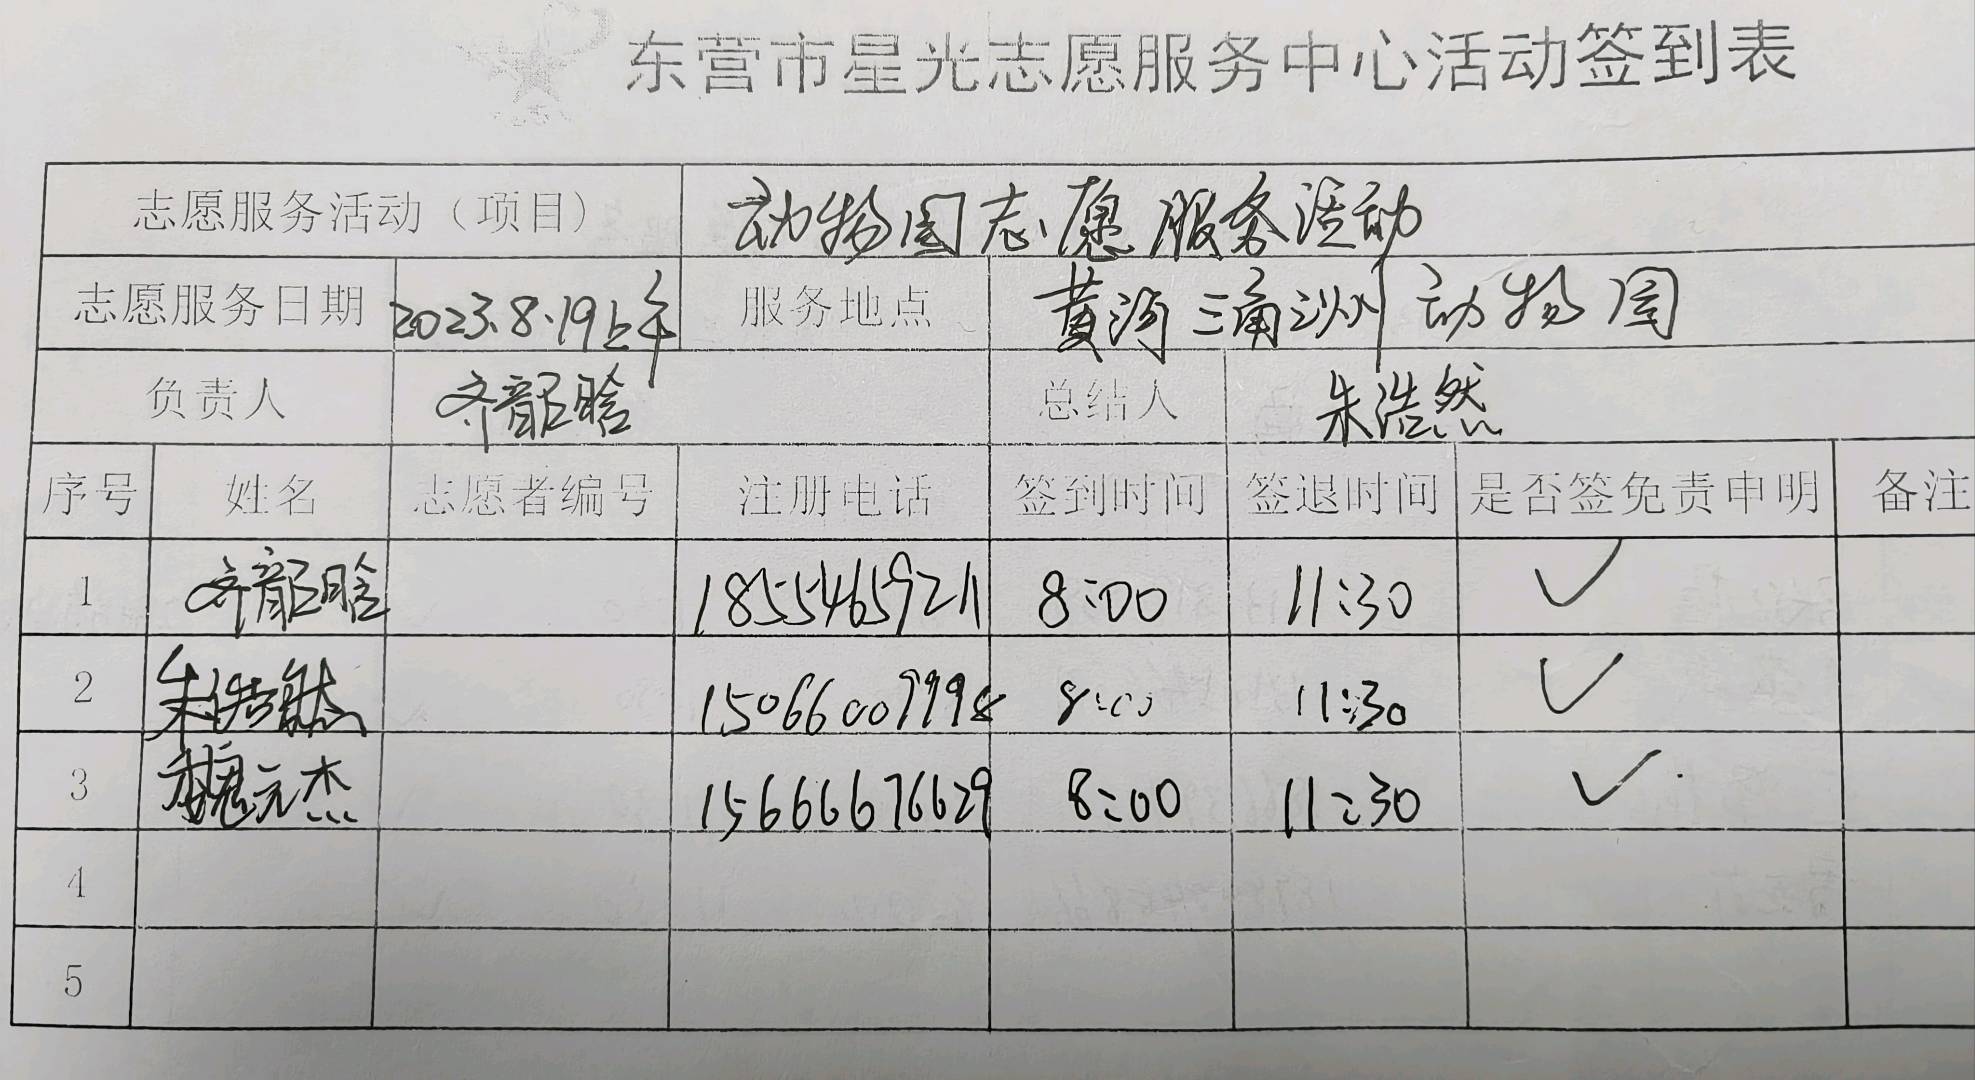 东营市星光志愿服务中心活动签到表
志愿服务活动（项目） 动物园志愿服务活动
志愿服务日期 2023.8.19上午 服务地点 黄河三角洲动物园
负责人 齐韶晗 总结人 朱浩然
序号 姓名 志愿者编号 注册电话 签到时间 签退时间 是否签免责申明 备注
1 齐韶晗 18554659211 8:00 11:30 ✓
2 朱浩然 15066009998 8:00 11:30 ✓
3 魏元杰 15666676629 8:00 11:30 ✓
4
5